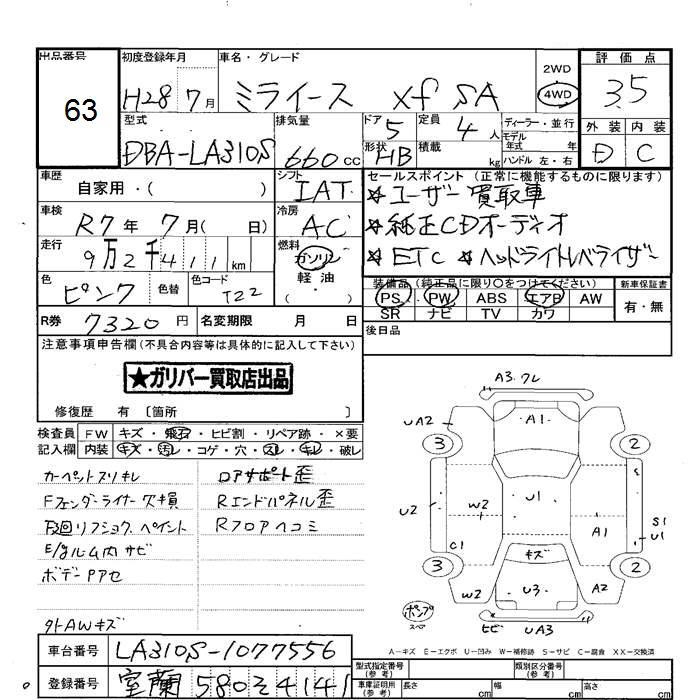 出品番号 63
初度登録年月 H28 7月
車名・グレード ミライース Xf SA
2WD 4WD
評価点 3.5
外装 D 内装 C
型式 DBA-LA310S
排気量 660cc
ドア 5 定員 4人
形状 HB 積載 kg
ディーラー・並行
モデル年式 年式
ハンドル 左・右
車歴 自家用・( )
シフト IAT
車検 R7年 7月( 日)
冷房 AC
走行 9万2千411km
燃料 ガソリン 軽油
色 ピンク 色替 色コード T22
セールスポイント (正常に機能するものに限ります)
☆ユーザー買取車
☆純正CDオーディオ
☆ETC ☆ヘッドライトレベライザー
装備品(純正品に限り○をつけてください)
PS PW ABS エアB AW
SR ナビ TV カワ
新車保証書 有・無
R券 7320円 名変期限 月 日
後日品
注意事項申告欄(不具合内容等は具体的に記入して下さい)
★ガリバー買取店出品
修復歴 有〔箇所 〕
検査員 FW キズ・飛石・ヒビ割・リペア跡・×要
記入欄 内装 キズ・汚レ・コゲ・穴・スレ・キレ・破レ
カーペットスリキレ
Fフェンダーライナー欠損
下廻リフショク、ペイント
E/gルーム内サビ
ボデーPアセ
外AWキズ
ロアサポート歪
Rエンドパネル歪
Rフロアヘコミ
A3.ワレ
UA2 A1
3 2
U2 W2 U1 A1 S1
U1
C1 キズ
3 2
W2 U3 A2
ポンプ
スペア
ヒビ UA3
A-キズ E-エクボ U-凹み W-補修跡 S-サビ C-腐食 XX-交換済
車台番号 LA310S-1077556
登録番号 室蘭 580 そ 4141
型式指定番号(参考) 類別区分番号(参考)
車庫証明用(参考) 長さ cm 幅 cm 高さ cm